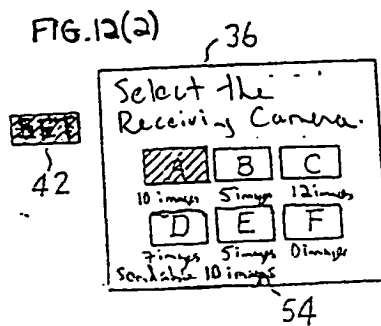 FIG.12(2)
36
Select the
Receiving Camera.
SET
42
A B C
10 images 5 images 12 images
D E F
7 images 5 images 0 images
Sendable 10 images
54